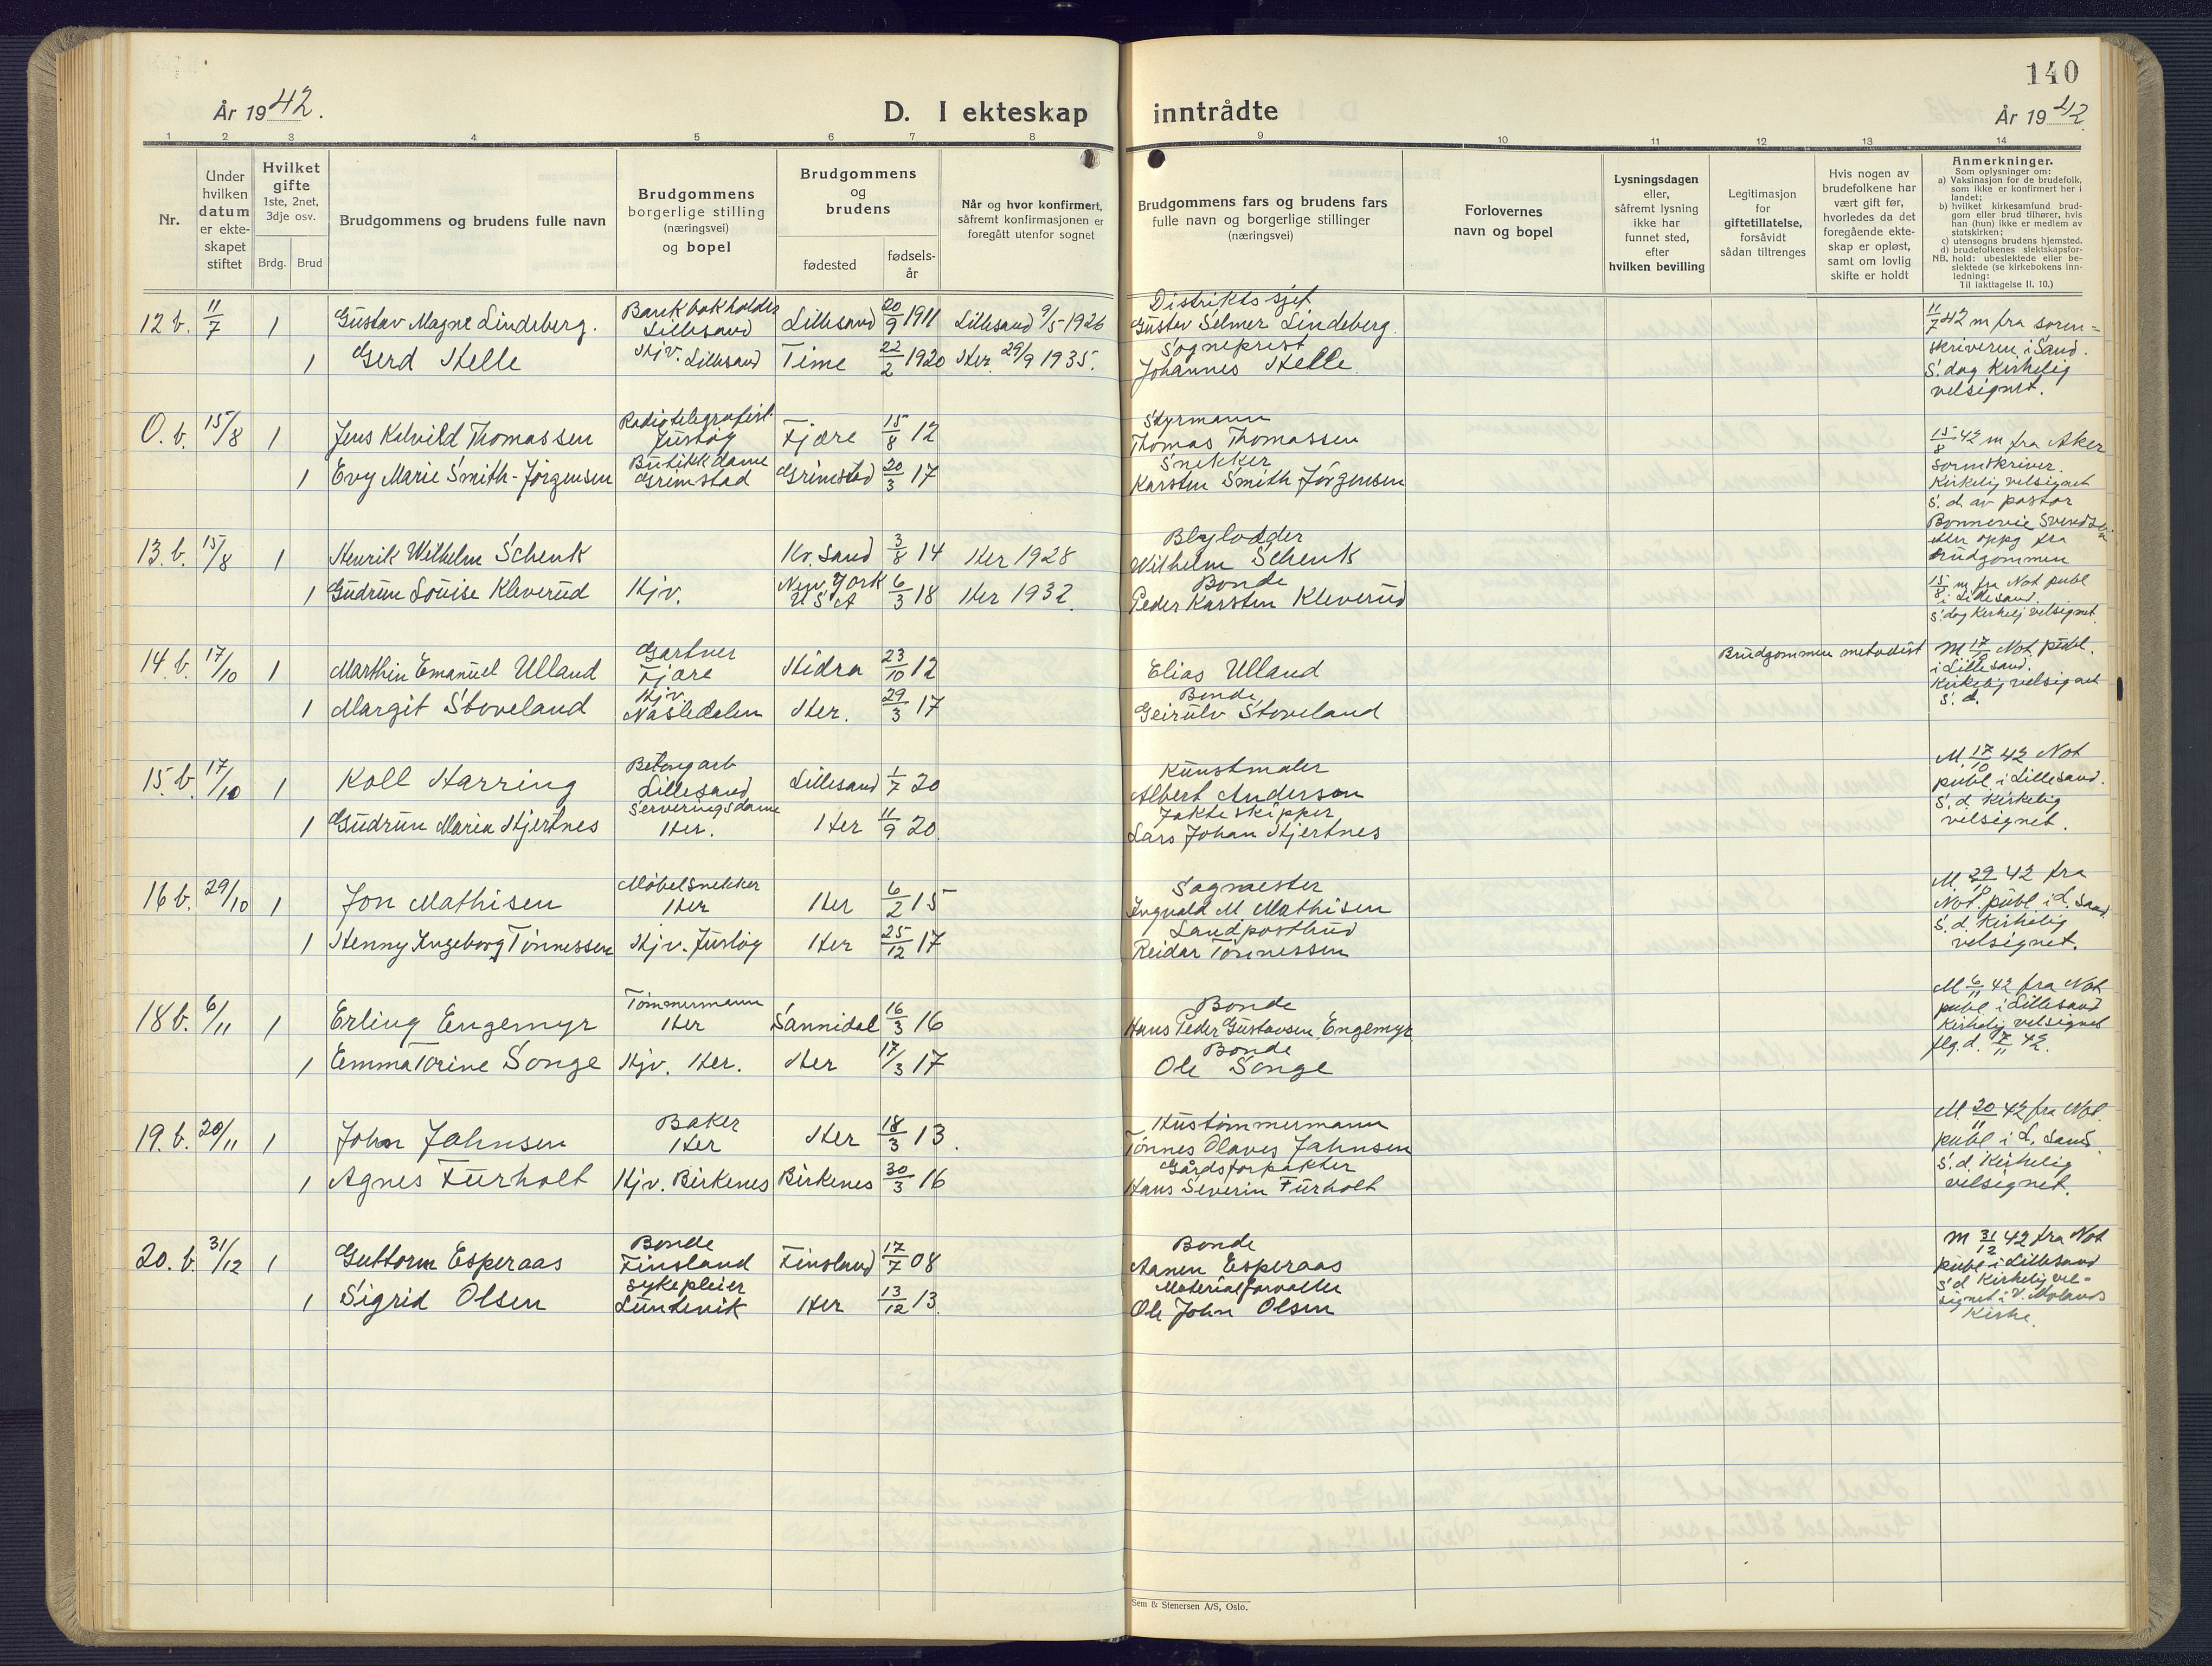 140
År 1942.
D. I ekteskap inntrådte
År 1942.
1 2 3 4 5 6 7 8 9 10 11 12 13 14
Nr.
Under
hvilken
datum
er ekte-
skapet
stiftet
Hvilket
gifte
1ste, 2net,
3dje osv.
Brdg. Brud
Brudgommens og brudens fulle navn
Brudgommens
borgerlige stilling
(næringsvei)
og bopel
Brudgommens
og
brudens
fødested
fødsels-
år
Når og hvor konfirmert,
såfremt konfirmasjonen er
foregått utenfor sognet
Brudgommens fars og brudens fars
fulle navn og borgerlige stillinger
(næringsvei)
Forlovernes
navn og bopel
Lysningsdagen
eller,
såfremt lysning
ikke har
funnet sted,
efter
hvilken bevilling
Legitimasjon
for
giftetillatelse,
forsåvidt
sådan tiltrenges
Hvis nogen av
brudefolkene har
vært gift før,
hvorledes da det
foregående ekte-
skap er opløst,
samt om lovlig
skifte er holdt
Anmerkninger.
Som oplysninger om:
a) Vaksinasjon for de brudefolk,
som ikke er konfirmert her i
landet;
b) hvilket kirkesamfund brud-
gom eller brud tilhører, hvis
han (hun) ikke er medlem av
statskirken;
c) utensogns brudens hjemsted.
d) brudefolkenes slektskapsfor-
NB. hold: ubeslektede eller be-
slektede (se kirkebokens inn-
ledning:
Til iakttagelse II. 10.)
12 b. 11/7 1 Gustav Magne Lindeberg. Bankbokholder Lillesand Lillesand 20/9 1911 Lillesand 9/5 1926 Distriktssjef Gustav Selmer Lindeberg.
1 Gerd Helle Hjv. Lillesand Time 22/2 1920 Her 29/9 1935. Sogneprest Johannes Helle.
11/7 42 m fra soren=
skriveren i Sand.
S. dag Kirkelig
velsignet.
0. b. 15/8 1 Jens Kalvild Thomassen Radiotelegrafist Justøy Fjære 15/8 12 Styrmann Thomas Thomassen
1 Evy Marie Smith-Jørgensen Butikkdame Grimstad Grimstad 20/3 17 Snekker Karsten Smith Jørgensen
15/8 42 m fra Aker
sorenskriver.
Kirkelig velsignet
s. d. av pastor
Bonnevie Svendsen
etter oppg fra
brudgommen
13. b. 15/8 1 Henrik Wilhelm Schenk Kr. sand 3/8 14 Her 1928 Blylodder Wilhelm Schenk
1 Gudrun Louise Kleverud Hjv. New York U S A 6/3 18 Her 1932. Bonde Peder Karsten Kleverud
15/8 m fra Not publ
i Lillesand.
S. dag Kirkelig velsignet.
14. b. 17/10 1 Marthin Emanuel Ulland Gartner Fjære Hidra 23/10 12 Elias Ulland Brudgommen metodist
1 Margit Stoveland Hjv. Nåsledalen Her. 29/3 17 Bonde Geirulv Stoveland
M 17/10 Not publ.
i Lillesand.
Kirkelig velsignet
S. d.
15. b. 17/10 1 Koll Harring Betongarb Lillesand Lillesand 1/7 20 Kunstmaler Albert Anderson
1 Gudrun Maria Hjertnes Serveringsdame Her. Her 11/9 20. Jakteskipper Lars Johan Hjertnes
M. 17/10 42 Not
publ. i Lillesand.
S. d. Kirkelig
velsignet.
16 b. 29/10 1 Jon Mathisen Møbelsnekker Her Her 6/2 15 Sagmester Ingvald M Mathisen
1 Henny Ingeborg Tønnessen Hjv. Justøy Her 25/12 17 Landpostbud Reidar Tønnessen
M. 29/10 42 fra
Not. publ i L. sand.
S. d. Kirkelig
velsignet.
18 b. 6/11 1 Erling Engemyr Tømmermann Her Sannidal 16/3 16 Bonde Hans Peder Gustavsen Engemyr
1 Emma Torine Songe Hjv. Her. Her 17/3 17 Bonde Ole Songe
M 6/11 42 fra Not
publ i Lillesand
Kirkelig velsignet
flg. d. 7/11 42.
19. b. 20/11 1 John Jahnsen Baker Her Her 18/3 13. Hustømmermann Tønnes Olaves Jahnsen
1 Agnes Furholt Hjv. Birkenes Birkenes 30/3 16 Gårdsforpakter Hans Severin Furholt
M. 20/11 42 fra Not.
publ i L. sand.
S. d. Kirkelig
velsignet.
20. b. 31/12 1 Guttorm Esperaas Bonde Finsland Finsland 17/7 08 Bonde Aanen Esperaas
1 Sigrid Olsen Sykepleier Luntevik Her 13/12 13. Materialforvalter Ole John Olsen
M 31/12 42 fra Not
publ i Lillesand
S d Kirkelig vel=
signet i V. Molands
Kirke.
Sem & Stenersen A/S, Oslo.